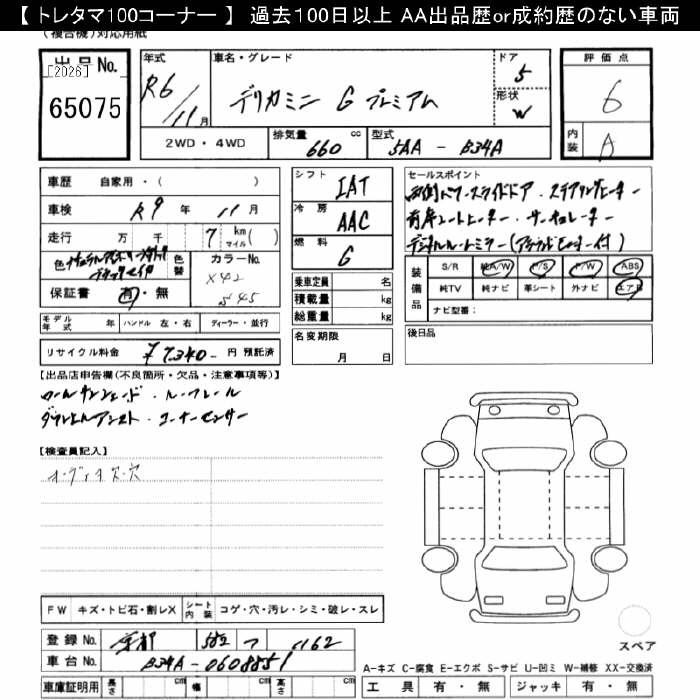 【 トレタマ100コーナー 】 過去100日以上 AA出品歴or成約歴のない車両
(複合機)対応用紙
出品No.
[2026]
65075
年式
R6/11月
車名・グレード
デリカミニ G プレミアム
ドア
5
形状
W
評価点
6
内装
A
2WD・4WD
排気量 660 cc
型式 5AA - B34A
車歴 自家用・( )
車検 R9年 11月
走行 万 千 7 km マイル ( )
色
色替
カラーNo.
X42
545
保証書 有・無
モデル年式 年 ハンドル 左・右 ディーラー・並行
リサイクル料金 ¥7,340- 円 預託済
シフト IAT
冷房 AAC
燃料 G
乗車定員 名
積載量 kg
総重量 kg
名変期限
月 日
セールスポイント
両側パワースライドドア・ステアリングヒーター
前席シートヒーター・サーキュレーター
デジタルルームミラー(
装備品
S/R 純A/W P/S P/W ABS
純TV 純ナビ 革シート 外ナビ エアB
ナビ型番:
後日品
【出品店申告欄(不良箇所・欠品・注意事項等)】
ロールサンシェード・ルーフレール
ダウンヒルアシスト・コーナーセンサー
【検査員記入】
オーディオ欠・穴
FW キズ・トビ石・割レX
シート内装 コゲ・穴・汚レ・シミ・破レ・スレ
登録No.
車台No. B34A-0608851
車庫証明用 長さ cm 幅 cm 高さ cm
スペア
A-キズ C-腐食 E-エクボ S-サビ U-凹ミ W-補修 XX-交換済
工具 有・無 ジャッキ 有・無